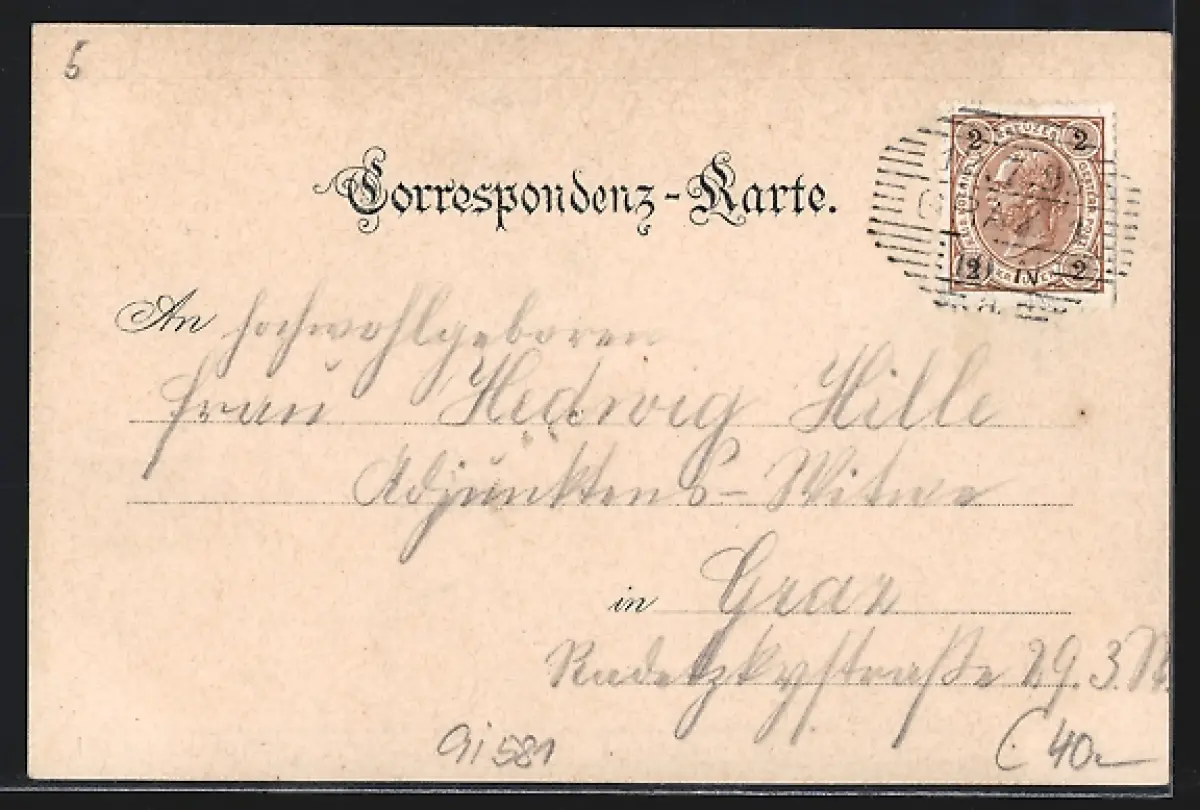 5
Correspondenz-Karte.
2 KREUZER 2
2 2
IV
An Hochwohlgeboren
Frau Hedwig Hille
Adjunktens-Witwe
in Graz
Radetzkystraße 29. 3. St.
Gi 581
40.-